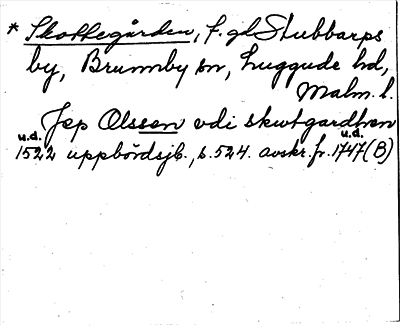 * Skottegården, f. gl Stubbarps
by, Brunnby sn, Luggude hd,
Malm. l.
Jep Olssen vdi skutgardhen
u.d. u.d.
1522 uppbördsjb., s. 524. avskr. fr. 1747 (B)